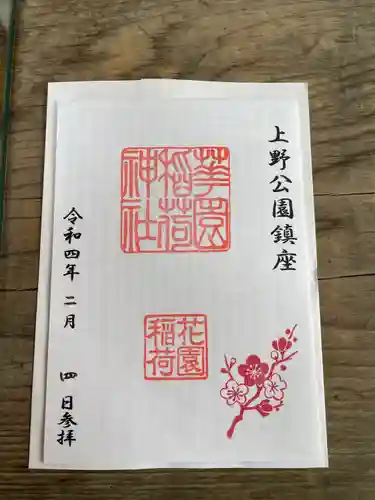 上野公園鎮座
華園
稲荷
神社
花園
稲荷
令和四年 二月 四日参拝